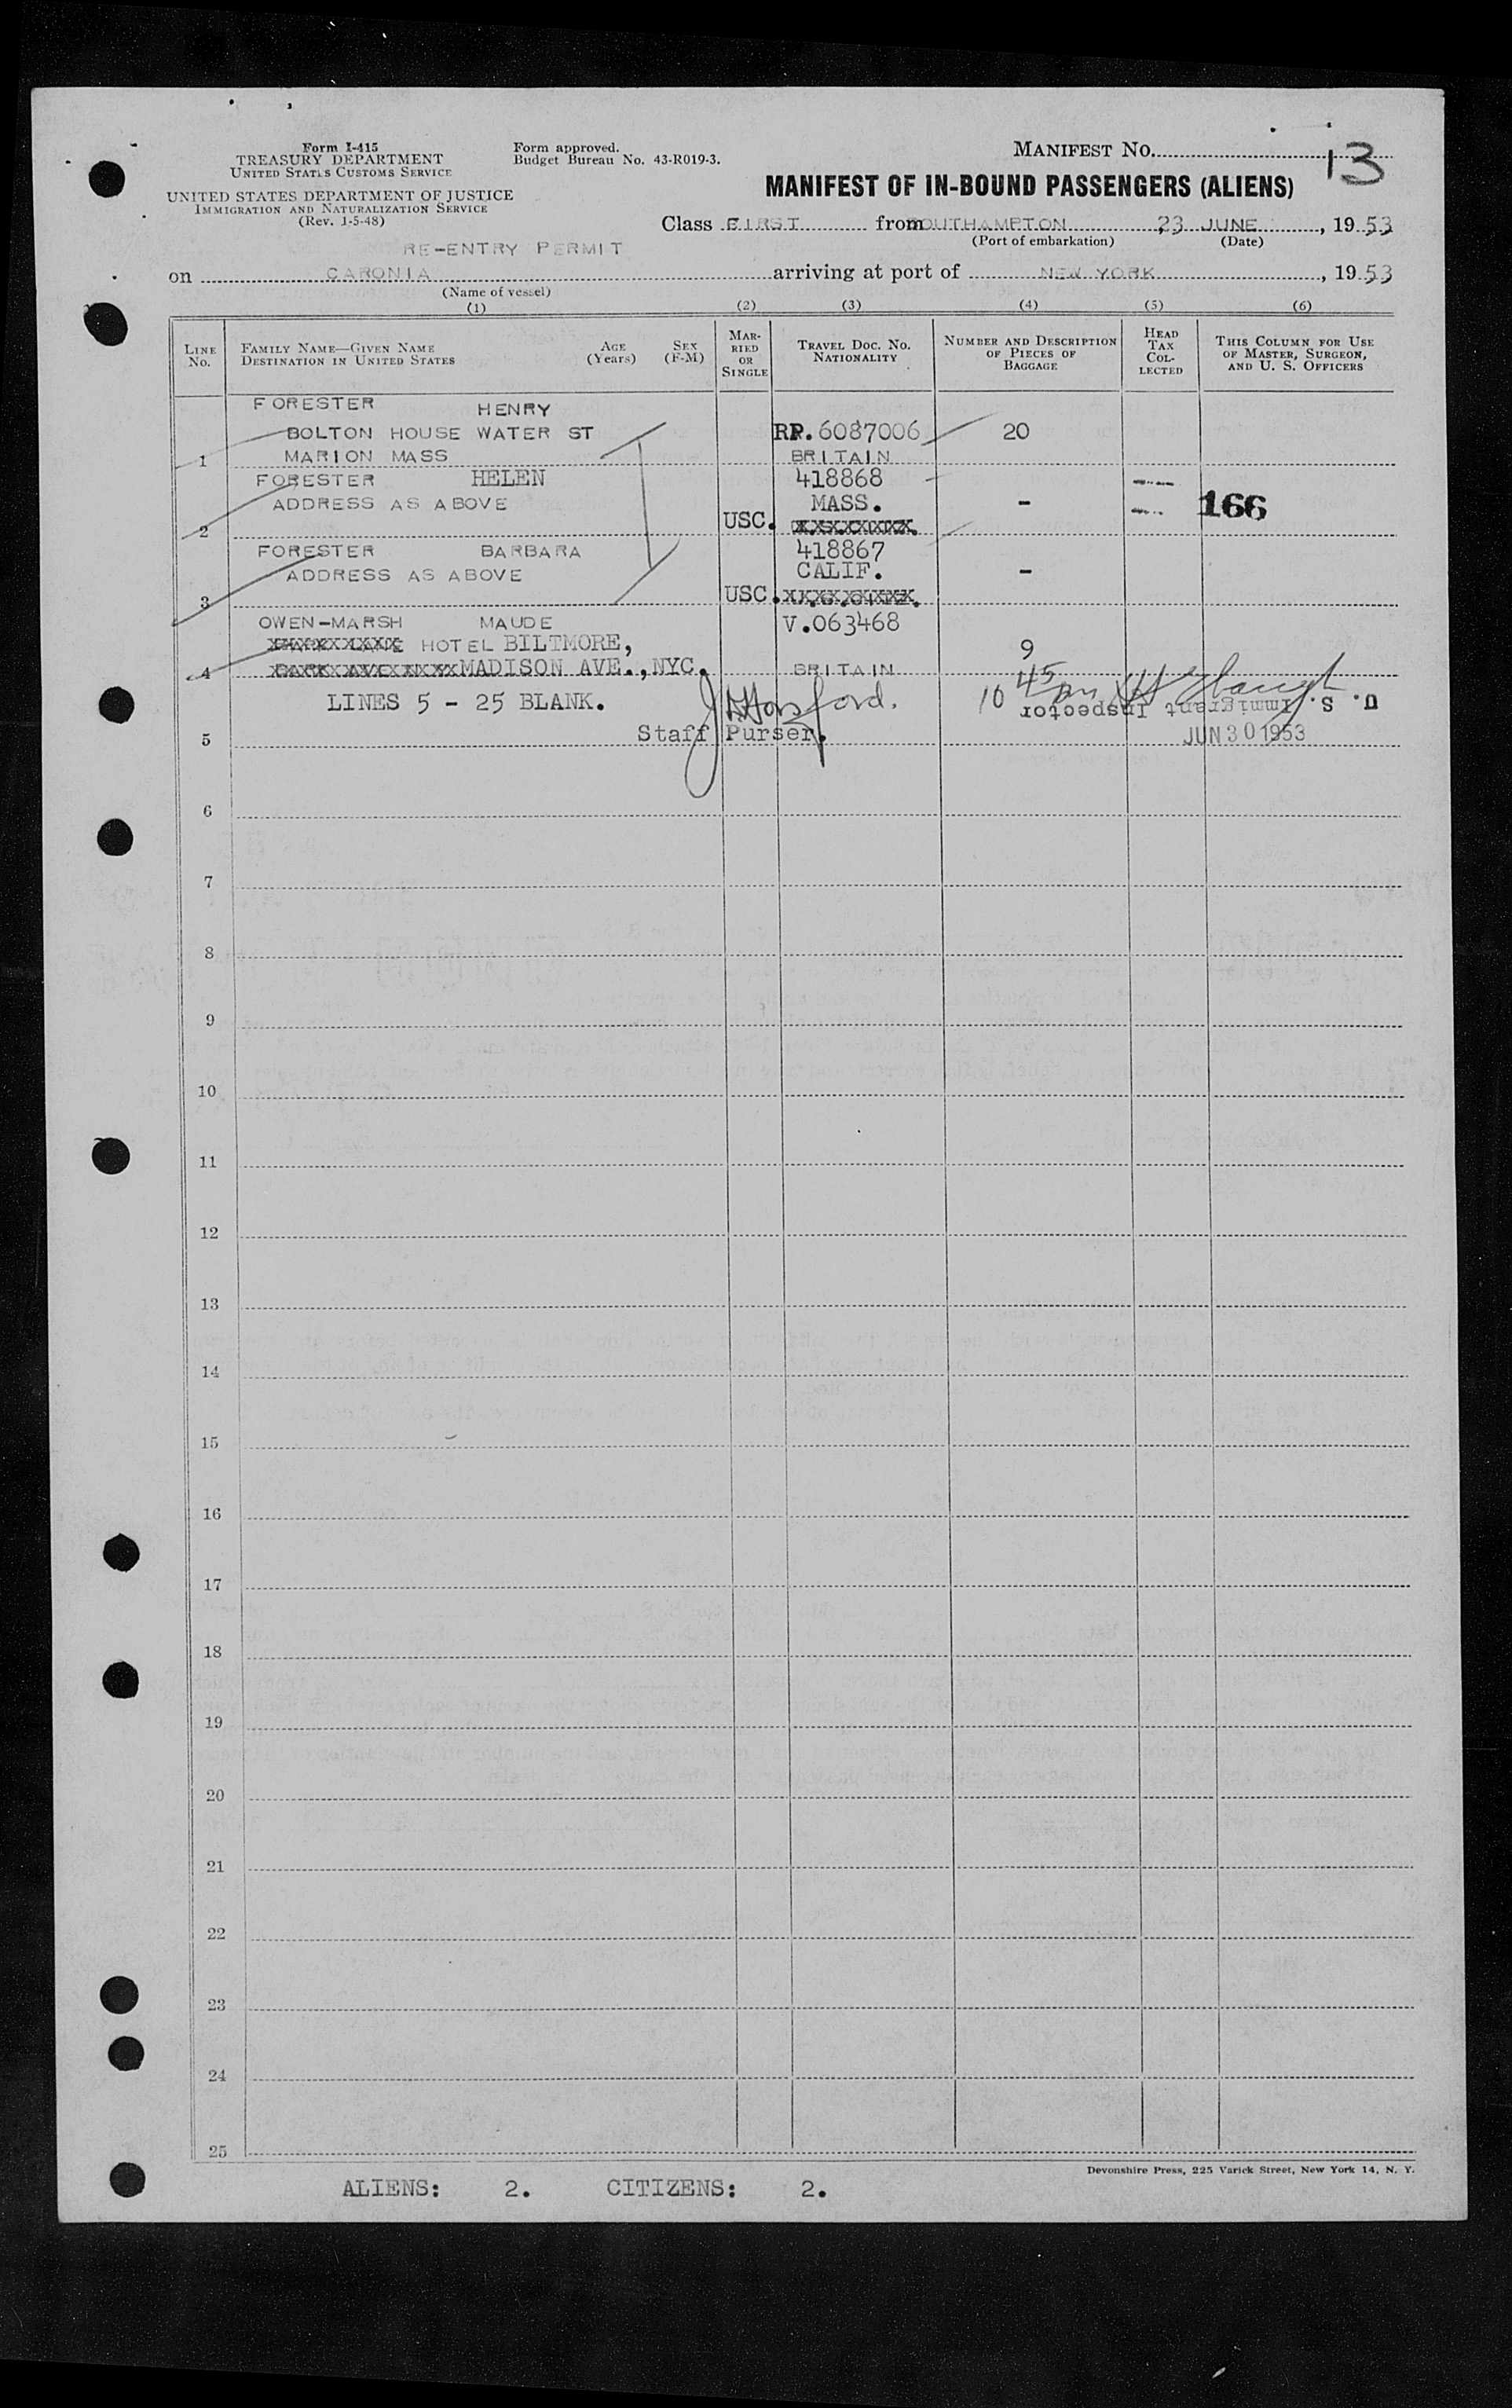 Form I-415
TREASURY DEPARTMENT
UNITED STATES CUSTOMS SERVICE
UNITED STATES DEPARTMENT OF JUSTICE
IMMIGRATION AND NATURALIZATION SERVICE
(Rev. 1-5-48)
Form approved.
Budget Bureau No. 43-R019-3.
MANIFEST NO. 13
MANIFEST OF IN-BOUND PASSENGERS (ALIENS)
Class FIRST from SOUTHAMPTON 23 JUNE, 1953
(Port of embarkation) (Date)
RE-ENTRY PERMIT
on CARONIA arriving at port of NEW YORK, 1953
(Name of vessel)
(1) (2) (3) (4) (5) (6)
LINE No. FAMILY NAME—GIVEN NAME DESTINATION IN UNITED STATES AGE (Years) SEX (F-M) MARRIED OR SINGLE TRAVEL DOC. NO. NATIONALITY NUMBER AND DESCRIPTION OF PIECES OF BAGGAGE HEAD TAX COLLECTED THIS COLUMN FOR USE OF MASTER, SURGEON, AND U. S. OFFICERS
FORESTER HENRY
BOLTON HOUSE WATER ST RP.6087006 20
1 MARION MASS BRITAIN
FORESTER HELEN 418868
ADDRESS AS ABOVE MASS. - 166
2 USC.
FORESTER BARBARA 418867
ADDRESS AS ABOVE CALIF. -
3 USC.
OWEN-MARSH MAUDE V.063468
HOTEL BILTMORE, 9
4 MADISON AVE., NYC. BRITAIN
LINES 5 - 25 BLANK. 10 45 U. S. Immigrant Inspector
5 Staff Purser. JUN 30 1953
6
7
8
9
10
11
12
13
14
15
16
17
18
19
20
21
22
23
24
25
Devonshire Press, 225 Varick Street, New York 14, N. Y.
ALIENS: 2. CITIZENS: 2.